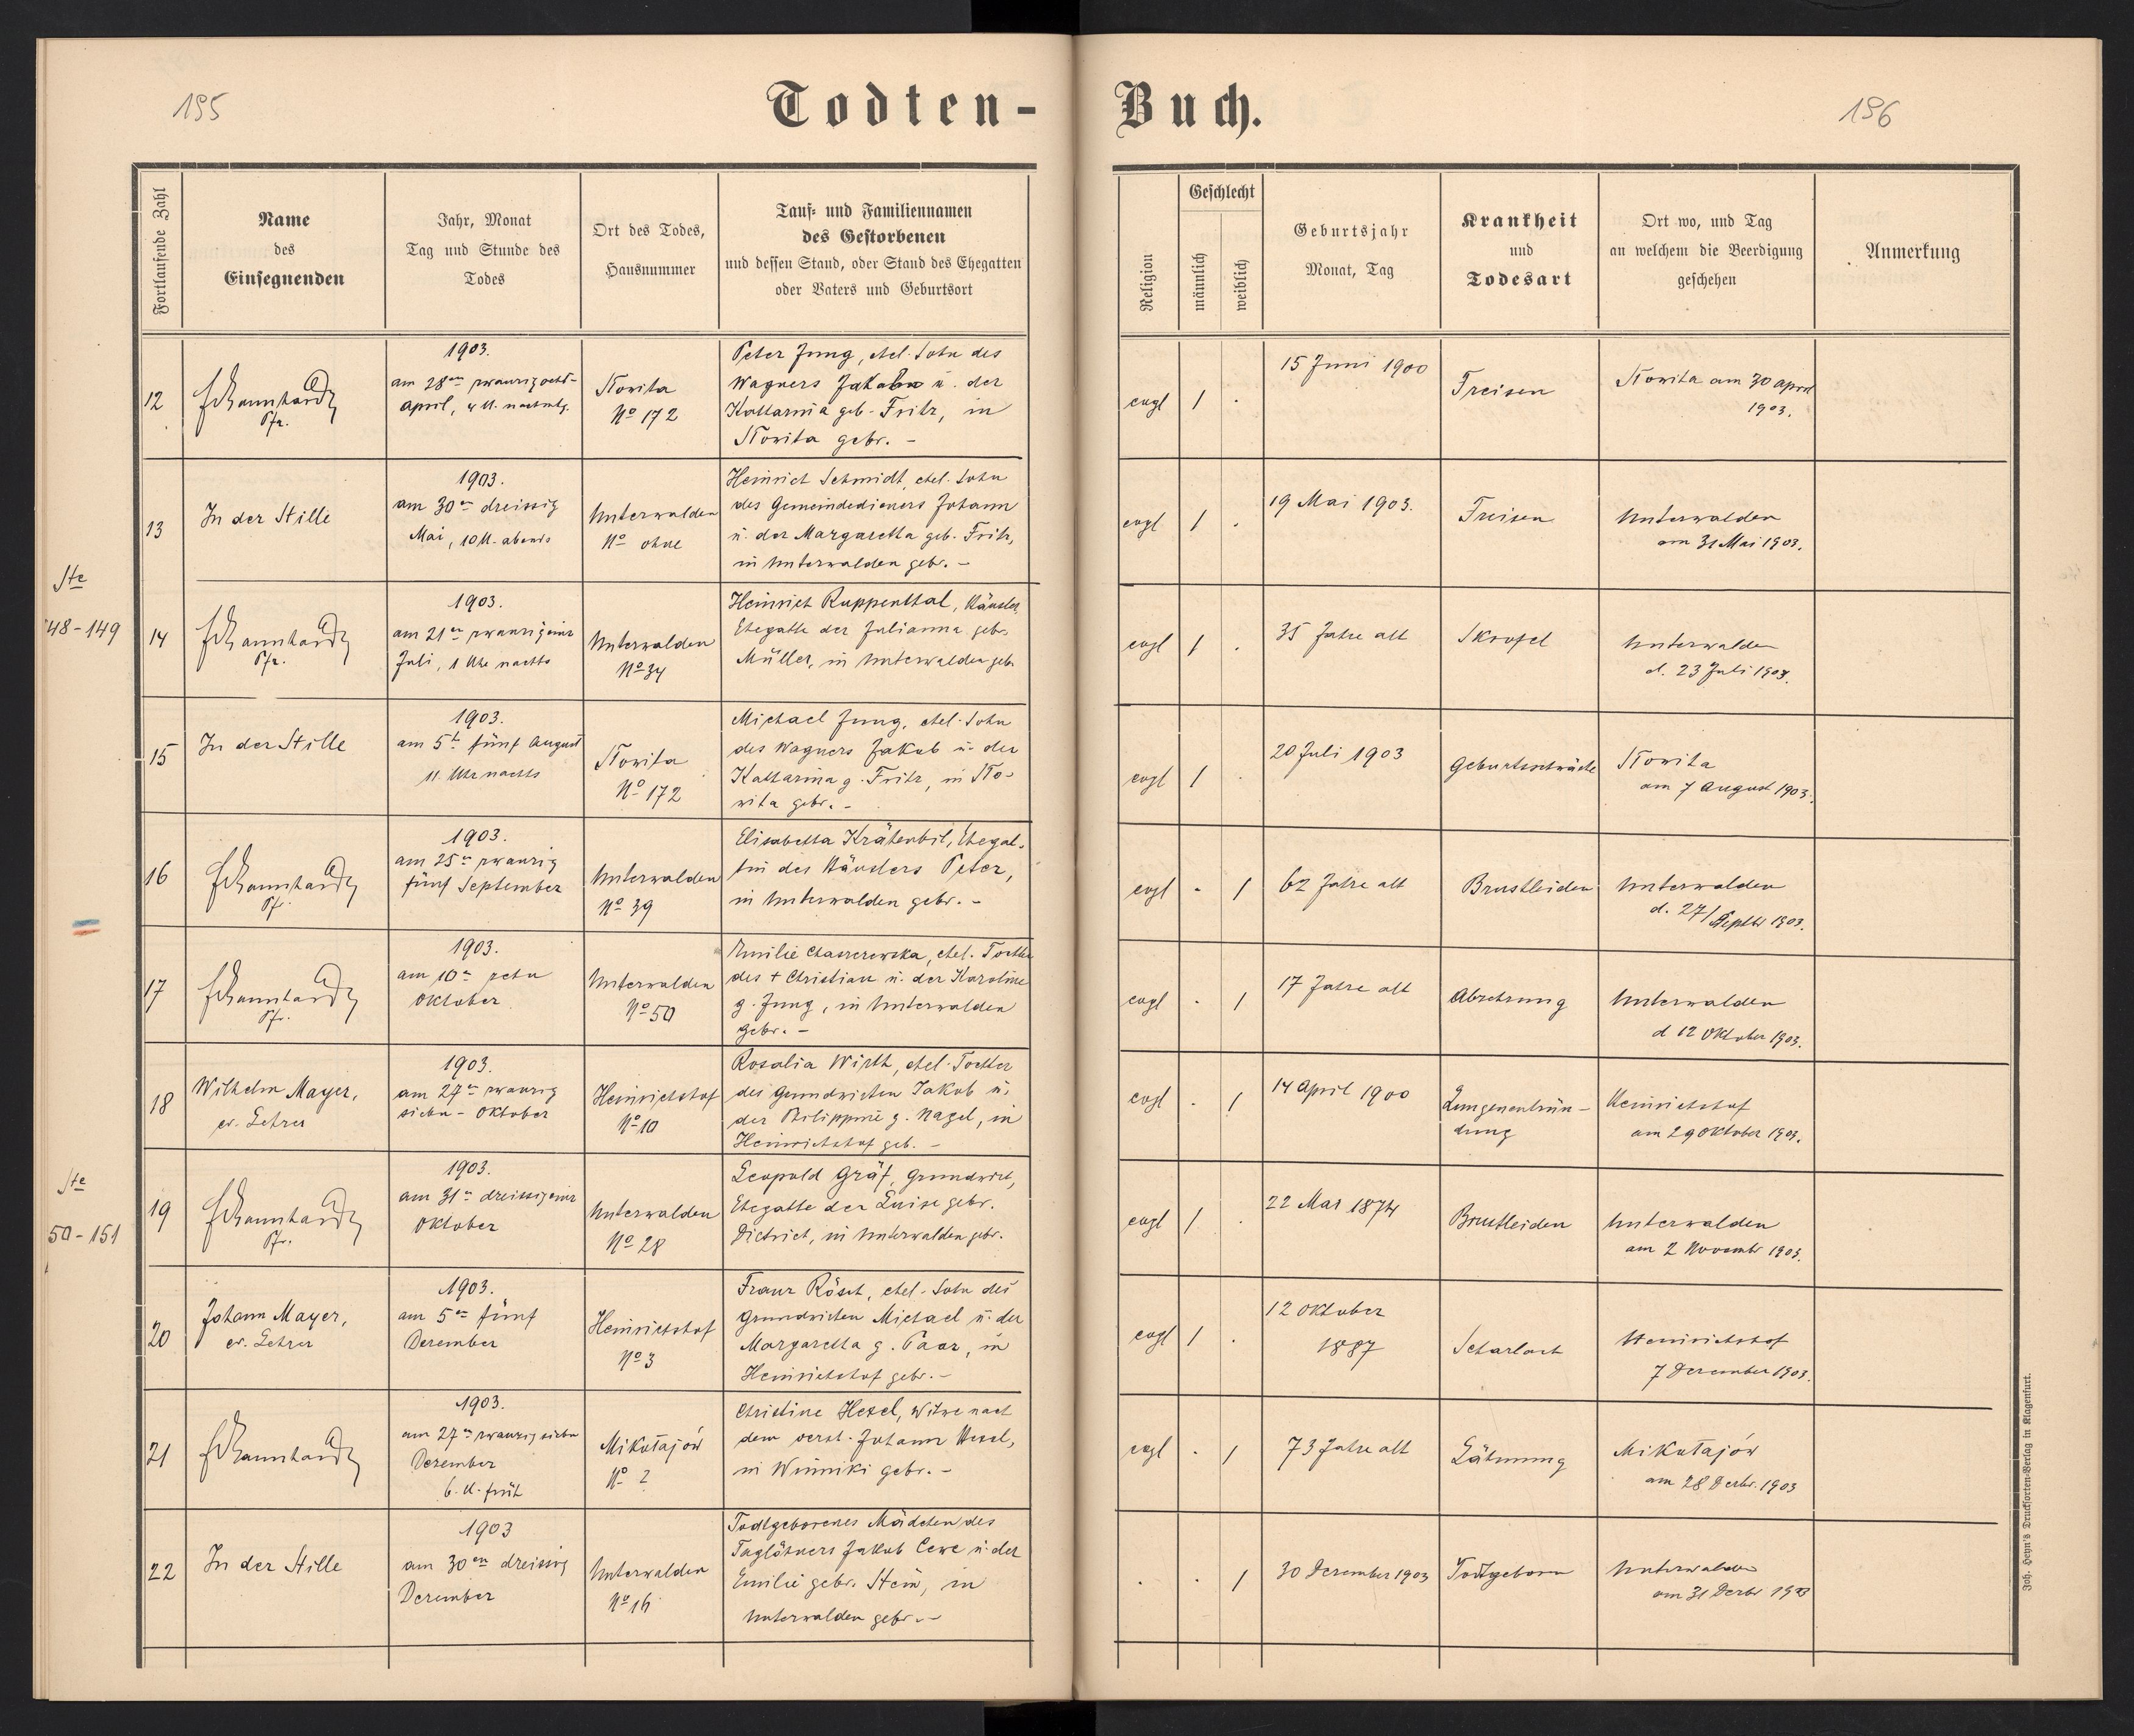 195
Todten-
Buch.
196
Fortlaufende Zahl
Name
des
Einsegnenden
Jahr, Monat
Tag und Stunde des
Todes
Ort des Todes,
Hausnummer
Tauf- und Familiennamen
des Gestorbenen
und dessen Stand, oder Stand des Ehegatten
oder Vaters und Geburtsort
Religion
Geschlecht
männlich
weiblich
Geburtsjahr
Monat, Tag
Krankheit
und
Todesart
Ort wo, und Tag
an welchem die Beerdigung
geschehen
Anmerkung
12
Pfr.
1903.
am 28en zwanzigacht-
April, 4 U. nachmtg.
Nowita
No 172
Peter Jung, ehel. Sohn des
Wagners Jakob u. der
Katharina geb. Fritz, in
Nowita gebr. -
evgl
1 .
15 Juni 1900
Freisen
Nowita am 30 April
1903.
13
In der Stille
1903.
am 30en dreissig
Mai, 10 U. abends
Unterwalden
No ohne
Heinrich Schmidt, ehel. Sohn
des Gemeindedieners Johann
u. der Margaretha geb. Fritz,
in Unterwalden gebr. -
evgl
1 .
19 Mai 1903.
Freisen
Unterwalden
am 31 Mai 1903.
Ste
148-149
14
Pfr.
1903.
am 21en zwanzigeins
Juli, 1 Uhr nachts
Unterwalden
No 34
Heinrich Ruppenthal, Häusler,
Ehegatte der Julianna gebr.
Müller, in Unterwalden geb.
evgl
1 .
35 Jahre alt
Skrofel
Unterwalden
d. 23 Juli 1903.
15
In der Stille
1903.
am 5t fünf August
11 Uhr nachts
Nowita
No 172
Michael Jung, ehel. Sohn
des Wagners Jakob u. der
Katharina g. Fritz, in No-
wita gebr. -
evgl
1 .
20 Juli 1903
Geburtsschwäche
Nowita
am 7 August 1903.
16
Pfr.
1903.
am 25en zwanzig
fünf September
Unterwalden
No 39
Elisabetha Krätenbil, Ehegat-
tin des Häuslers Peter,
in Unterwalden gebr. -
evgl
- 1
62 Jahre alt
Brustleiden
Unterwalden
d. 27/Septbr 1903.
17
Pfr.
1903.
am 10en zehn
Oktober
Unterwalden
No 50
Emilie ehel. Tochter
des + Christian u. der Karoline
g. Jung, in Unterwalden
gebr. -
evgl
. 1
17 Jahre alt
Abzehrung
Unterwalden
d 12 Oktober 1903.
18
Wilhelm Mayer,
ev. Lehrer
1903.
am 27en zwanzig
sieben - Oktober
Heinrichshof
No 10
Rosalia Wirth, ehel. Tochter
des Grundwirten Jakob u.
der Philippine g. Nagel, in
Heinrichshof geb. -
evgl
. 1
14 April 1900
Lungenentzün-
dung
Heinrichshof
am 29 Oktober 1903.
Ste
150-151
19
Pfr.
1903.
am 31en dreissigeins
Oktober
Unterwalden
No 28
Leopold Gräf, Grundwirt,
Ehegatte der Luise gebr.
Dietrich, in Unterwalden gebr.
evgl
1 .
22 Mai 1874
Brustleiden
Unterwalden
am 2 Novembr 1903.
20
Johann Mayer,
ev. Lehrer
1903.
am 5en fünf
Dezember
Heinrichshof
No 3
Franz Rösch, ehel. Sohn des
Grundwirten Michael u. der
Margaretha g. Paar, in
Heinrichshof gebr. -
evgl
1 .
12 Oktober
1887
Scharlach
Heinrichshof
7 Dezember 1903.
21
1903.
am 27en zwanzigsieben
Dezember
6. U. früh
Mikołajów
No ?
Christine Hexel, Witwe nach
dem verst. Johann Hexel,
in Winniki gebr. -
evgl
. 1
73 Jahre alt
Lähmung
Mikołajów
am 28 Dezbr. 1903
22
In der Stille
1903
am 30en dreissig
Dezember
Unterwalden
No 16
Todtgeborenes Mädchen des
Taglöhners Jakob Cewe u. der
Emilie gebr. Stein, in
Unterwalden gebr. -
. . 1
30 Dezember 1903
Todtgeboren
Unterwalden
am 31 Dezbr 1903
Joh. Heyn's Drucksorten-Verlag in Klagenfurt.